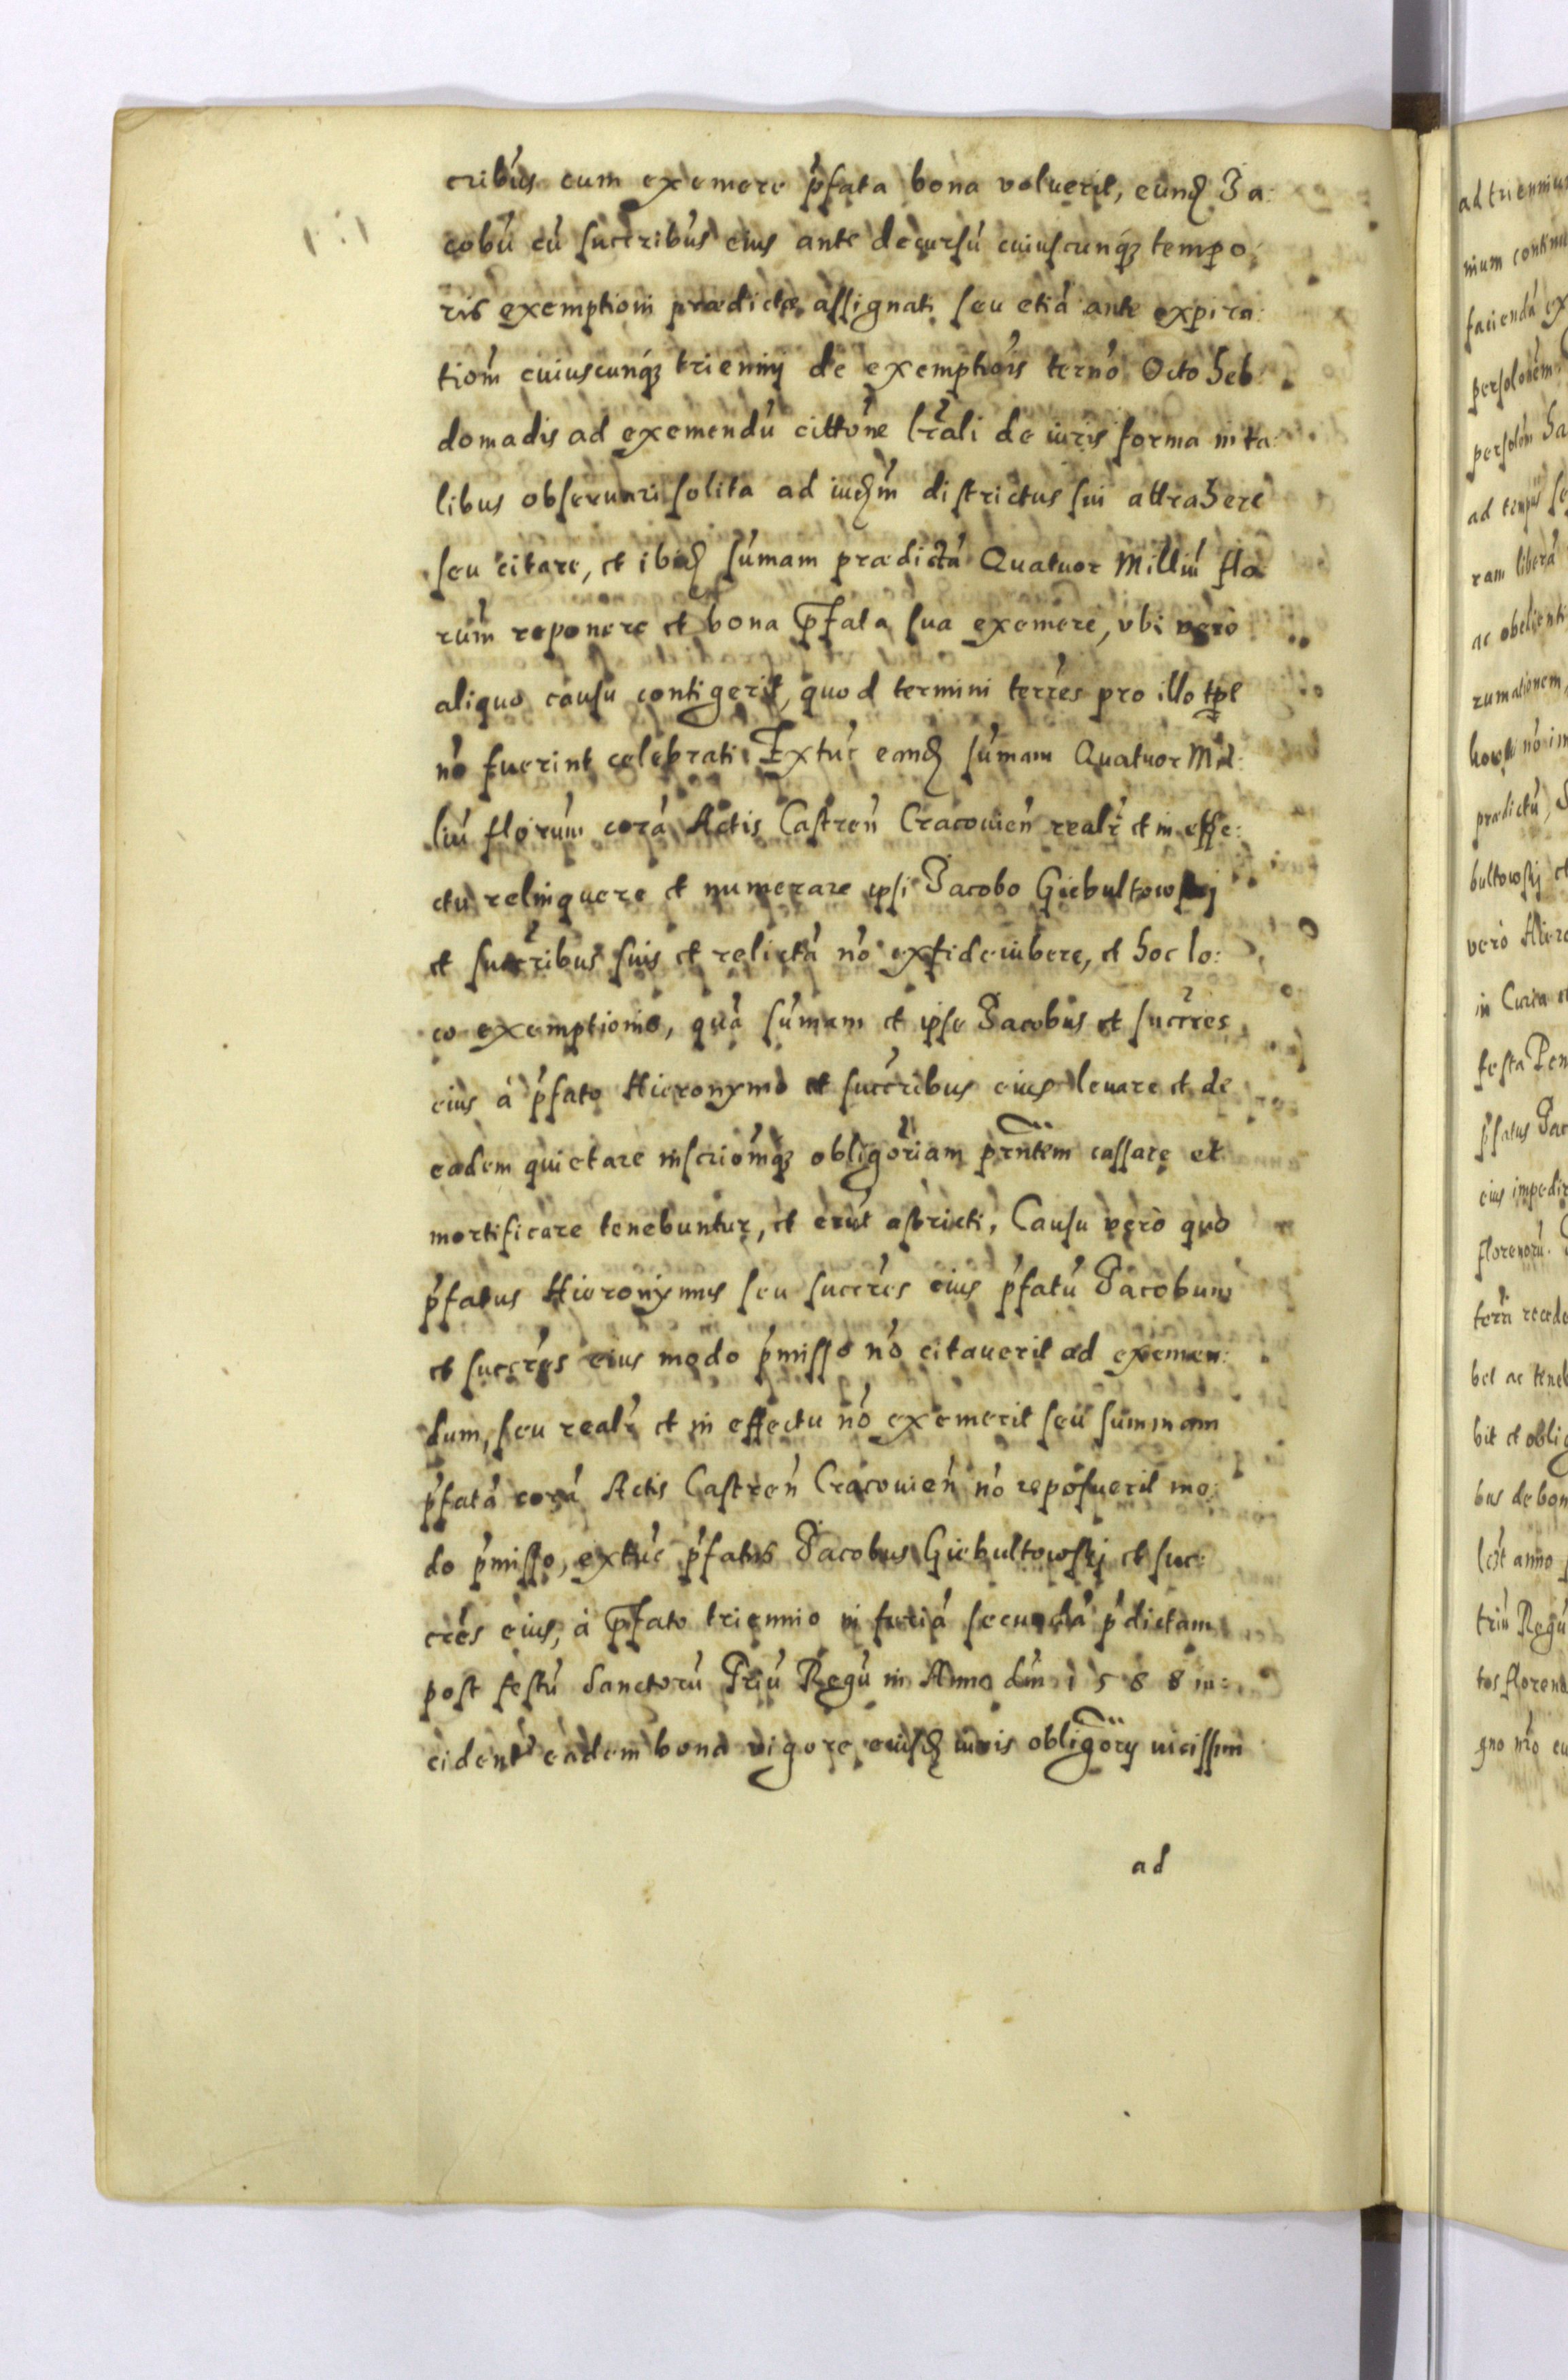 cribus eum exemere p̄fata bona voluerit, eund Ja:
cobū cū succribus eius ante decursū cuiuscunq tempo:
ris exemptioni prædictæ assignati seu etiā ante expira:
tiom̄ cuiuscunq triennij de exemptiois ternō Octo heb:
domadis ad exemendū cittōne lr̄ali de iuris forma in ta:
libus obseruari solita ad iud̄m districtus sui attrahere
seu citare, et ibid sūmam prædictā Quatuor Milliū flo:
rūm reponere et bona p̄fata sua exemere, vbi verò
aliquo causu contigerit, quod termini terr̄es pro illo tp̄e
nō fuerint celebrati Extūc eand sūmam Quatuor Mil:
liū flor̄um corā Actis Castren̄ Cracouien̄ realr̄ et in effe:
ctu relinquere et numerare ipsi Jacobo Giebultowskj
et succribus suis et relictā nō exfideiubere, et hoc lo:
co exemptionis, quā sūmam et ipse Jacobus et succres
eius à p̄fato Hieronymo et succribus eius leuare et de
eadem quietare inscriōmq obligōriam pr̄ntem cassare et
mortificare tenebuntur, et erūt astricti, Causu verò quo
p̄fatus Hieronymus seu succres eius p̄fatū Jacobum
et succres eius modo p̄misso nō citauerit ad exemen:
dum, seu realr̄ et in effectu nō exemerit seu summam
p̄fatā corā Actis Castren̄ Cracouien̄ nō reposuerit mo:
do p̄misso, extūc p̄fatus Jacobus Giebultowskj et suc:
cres eius, à p̄fato triennio in feriā secundā p̄dictam
post festū Sanctorū Triū Regū in Anno dn̄i 1588 in:
cident̄ eadem bona vigore eiusd iuris obligōrij uicissim
ad
ad trienniu
nium continu
faciendā ex
ad tempus se
ram liberā
ac obedienti
rumationem,
prædictū,
bultowskj et
verò Hiero
in Curia
festa Pen
p̄fatus Jac
eius impedir
florenorū.
bet ac teneb
bit et oblig
bus de bon
triū Regū
tos floreno